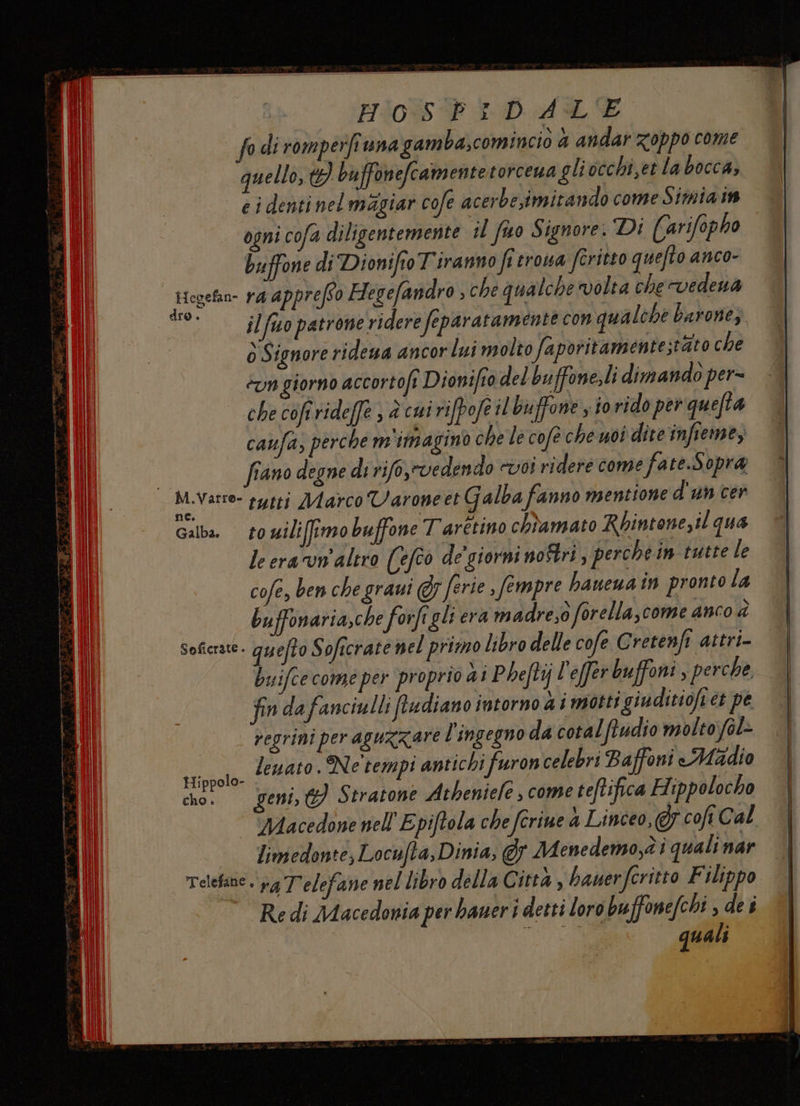 HOSPIDALE
ſo di romperſi una gamba, cominciò à andar zoppo come
quello, & buffoneſcamente torceua gli occhi, et la bocca,
e i denti nel mãgiar coſe acerbe, imitando come Simia in
ogni coſa diligentemente il ſuo Signore. Di Cariſopho
buffone di Dioniſio Tiranno ſi troua ſcritto queſto anco-
Hegeſan- ra appreſſo Hegeſandro, che qualche volta che vedeua
dro. il ſuo patrone ridere ſeparatamente con qualche barone,
ò Signore rideua ancor lui molto ſaporitamente; tãto che
vn giorno accortoſi Dioniſio del buffone, li dimandò per-
che coſi rideſſe, à cui riſpoſe il buffone, io rido per queſta
cauſa, perche m'imagino che le coſe che uoi dite inſieme,
ſiano degne di riſo, vedendo voi ridere come fate. Sopra
M. Varro- tutti Marco Varone et Galba fanno mentione d'un cer
ne.
Galba. to uiliſſimo buffone Tarẽtino chiamato Rhintone, il qua
le era vn'altro Ceſco de' giorni noſtri, perche in tutte le
coſe, ben che graui & ſerie, ſempre haueua in pronto la
buffonaria, che forſi gli era madre, ò ſorella, come anco à
Soſicrate. queſto Soſicrate nel primo libro delle coſe Cretenſi attri-
buiſce come per proprio à i Pheſtij l'eſſer buffoni, perche
fin da fanciulli ſtudiano intorno à i motti giuditioſi et pe
regrini per aguzzare l'ingegno da cotal ſtudio molto ſol-
leuato. Ne' tempi antichi furon celebri Baffoni Mãdio
Hippolo-
cho. geni, & Stratone Athenieſe, come teſtifica Hippolocho
Macedone nell' Epiſtola che ſcriue à Linceo, & coſi Cal
limedonte, Locuſta, Dinia, & Menedemo, à i quali nar
Teleſane. ra Teleſane nel libro della Città, hauer ſcritto Filippo
Re di Macedonia per hauer i detti loro buffoneſchi, de i
quali